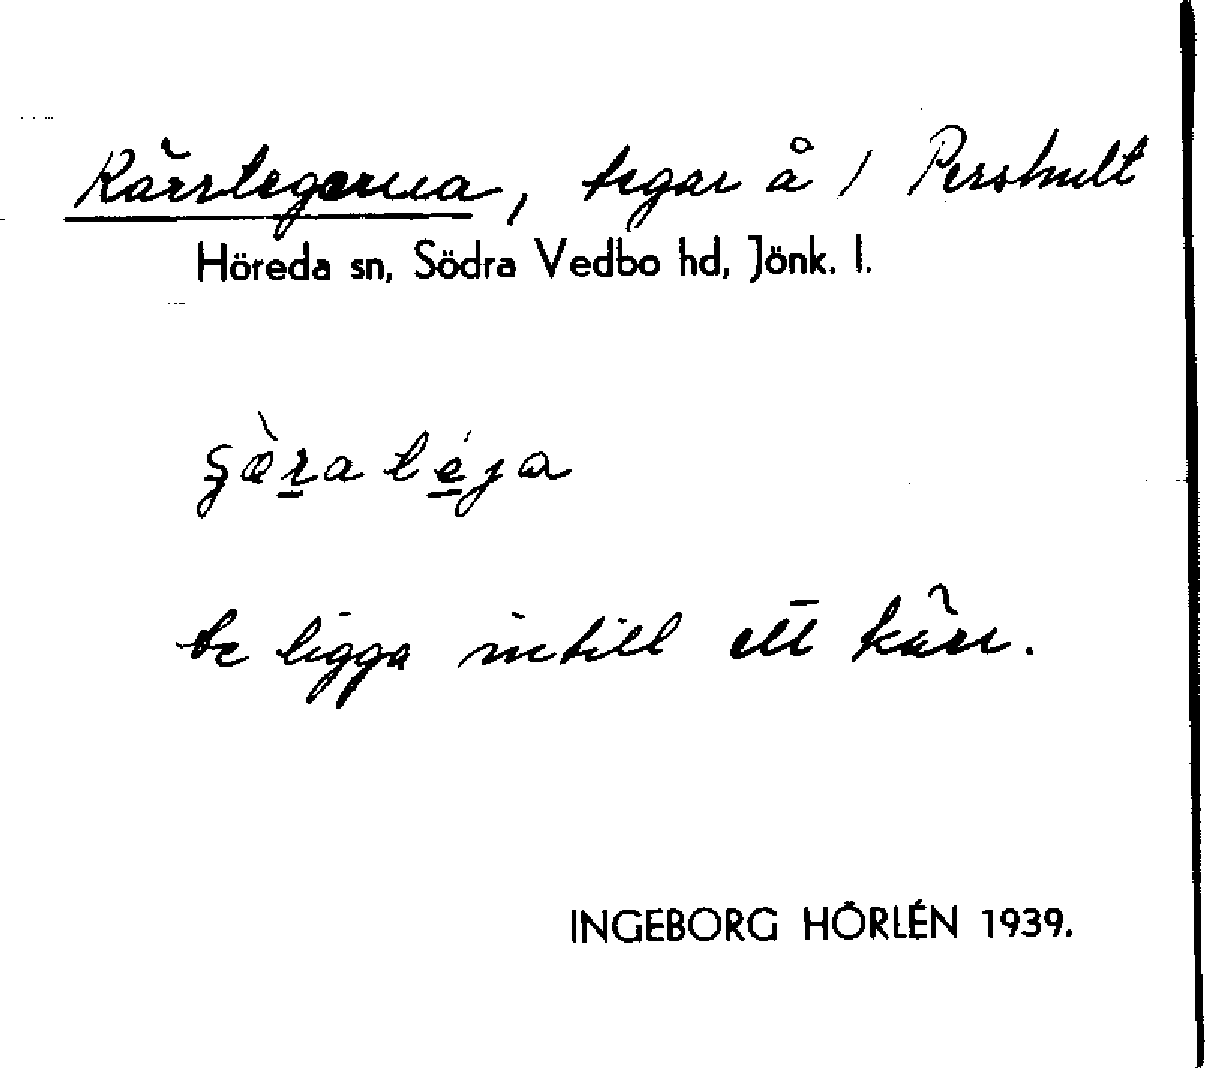 Kärrtegarna, tegar å 1 Pershult
Höreda sn, Södra Vedbo hd, Jönk. l.
be ligga intill ett kärr.
INGEBORG HÖRLÉN 1939.